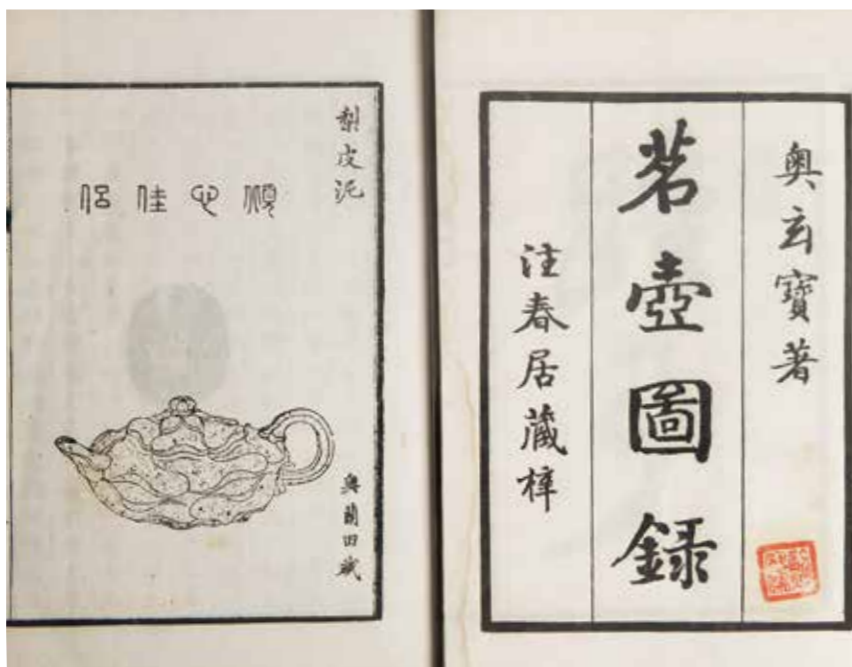 奧玄寶著
茗壺圖録
注春居藏梓
梨皮泥
傾心佳侶
奧蘭田藏